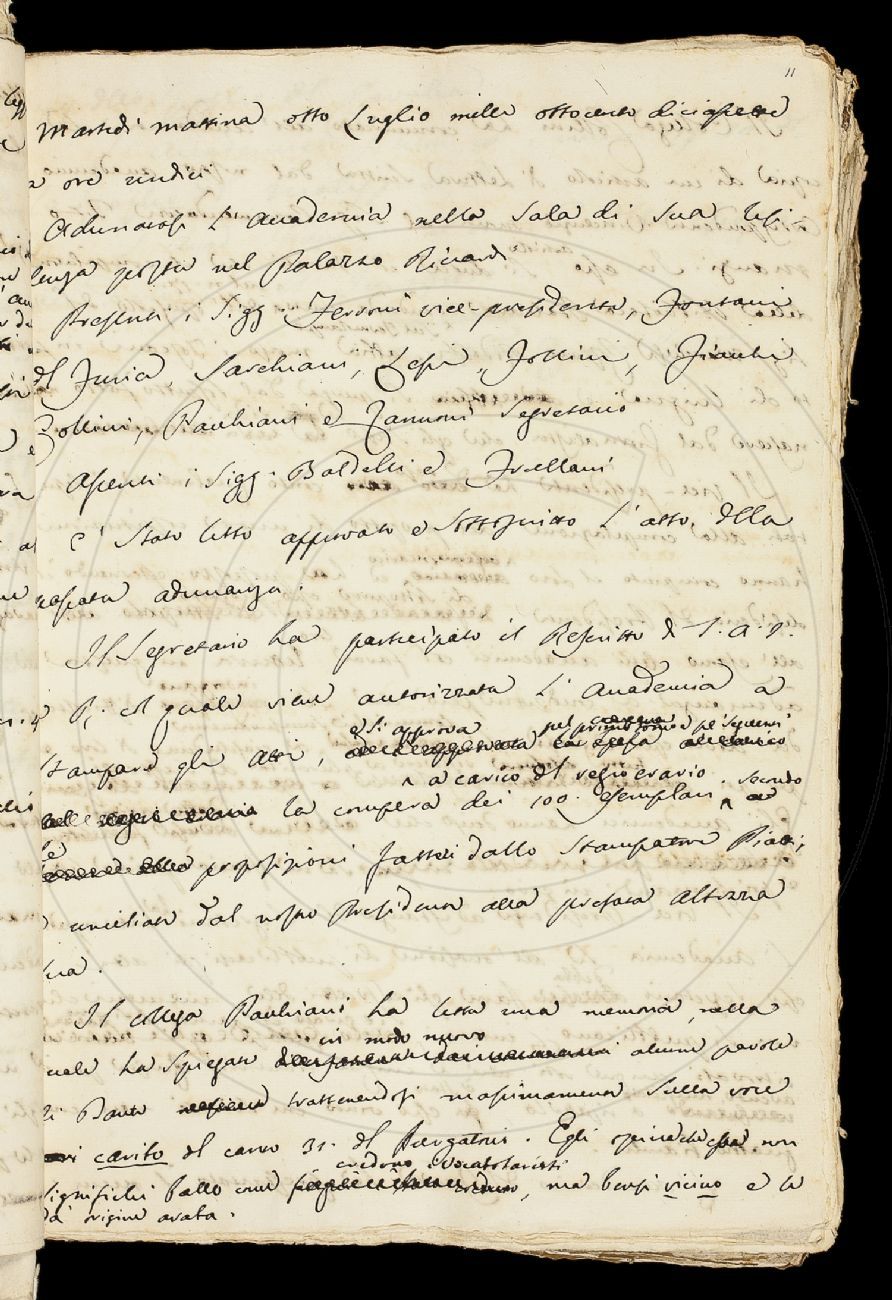 11
Martedì mattina otto Luglio mille ottocento diciassette
a ore undici
Adunatasi l'Accademia nella Sala di Sua Resi
denza posta nel Palazzo Riccardi
Presenti i Sigg. Ferroni vice-presidente, Fontani
del Furia, Sarchiani, Lessi, Follini, Fiacchi
Zollini, Pauchiani e Zannoni Segretario
Assenti i Sigg. Baldelli e Fucellani
E' stato letto approvato e sottoscritto l'atto della
passata adunanza.
Il Segretario ha participato il Rescritto di S. A. I.
R; col quale viene autorizzata l'Accademia a
e si approva pel primo tomo e pe' seguenti
stampare gli Atti,
a carico del regio erario. secondo
la compera dei 100. esemplari
le proposizioni fatte dallo Stampatore Piatti,
e umiliate dal nostro Presidente alla prefata Altezza
Sua.
Il collega Pauchiani ha letta una memoria, nella
in modo nuovo
quale ha spiegate alcune parole
di Dante trattenendosi massimamente sulla voce
carito del canto 31. del Purgatorio. Egli opina che essa non
credono i vocabolaristi
significhi fallo come, ma bensì vicino e le
dà origine arata.